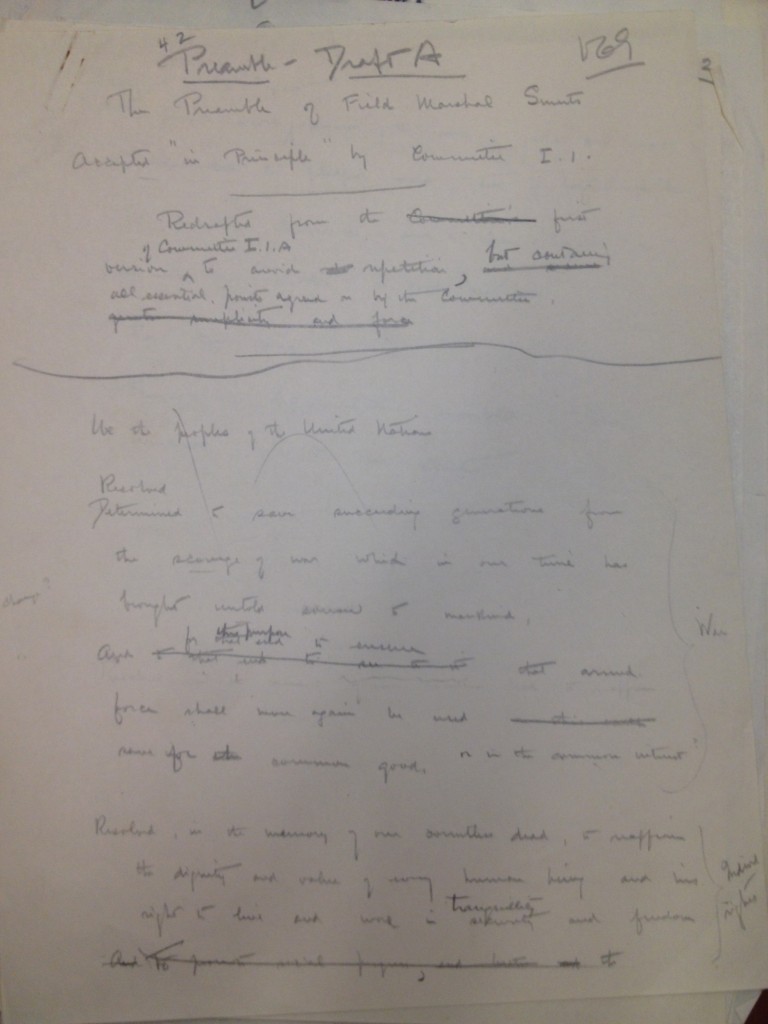 42
Preamble - Draft A
The Preamble of Field Marshal Smuts
Accepted "in Principle" by Committee I.1.
Redrafted from the first
of Committee I.1.A
version to avoid repetition, but containing
all essential points agreed on by the Committee.
We the peoples of the United Nations
Resolved
Determined to save succeeding generations from
the scourge of war which in our time has
brought untold sorrow to mankind,
for this purpose to ensure
And that armed
force shall never again be used
save for the common good, or in the common interest
War
Resolved, in the memory of our countless dead, to reaffirm
the dignity and value of every human being and his
tranquility
right to live and work in security and freedom
Individ
rights
And to promote social progress, and better the